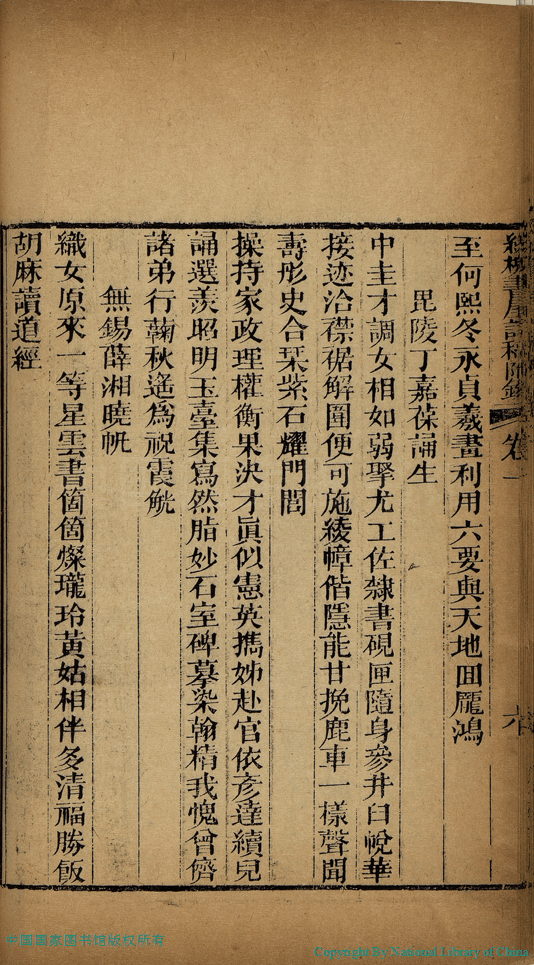 至何熙冬永貞羲畫利用六要與天地回龎鴻
毘陵丁嘉葆誦生
中圭才調女相如弱擧尤工佐隸書硯匣隨身參井臼帨華
接迹洽襟裾解圍便可施綾幛偕隱能甘挽鹿車一樣聲聞
壽彤史合琹紫石耀門閭
操持家政理權衡果決才眞似憲英攜姊赴官依彦逹續兒
誦選羨昭明玉臺集寫然脂妙石室碑摹染翰精我愧曾儕
諸弟行蘜秋遥爲祝霞觥
無錫薛湘曉帆
織女原來一等星雲書箇箇燦瓏玲黃姑相伴多清福勝飯
胡麻讀道經
書屋詩 附錄 卷一
六
中国国家图书馆版权所有
Copyright By National Library of China